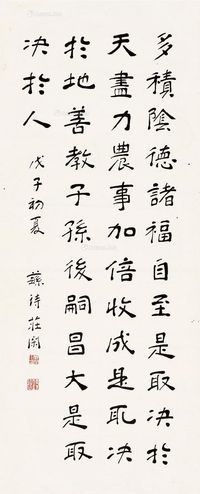 多積陰德諸福自至是取决於
天盡力農事加倍收成是取决
於地善教子孫後嗣昌大是取
决於人
戊子初夏
蘇詩莊閑